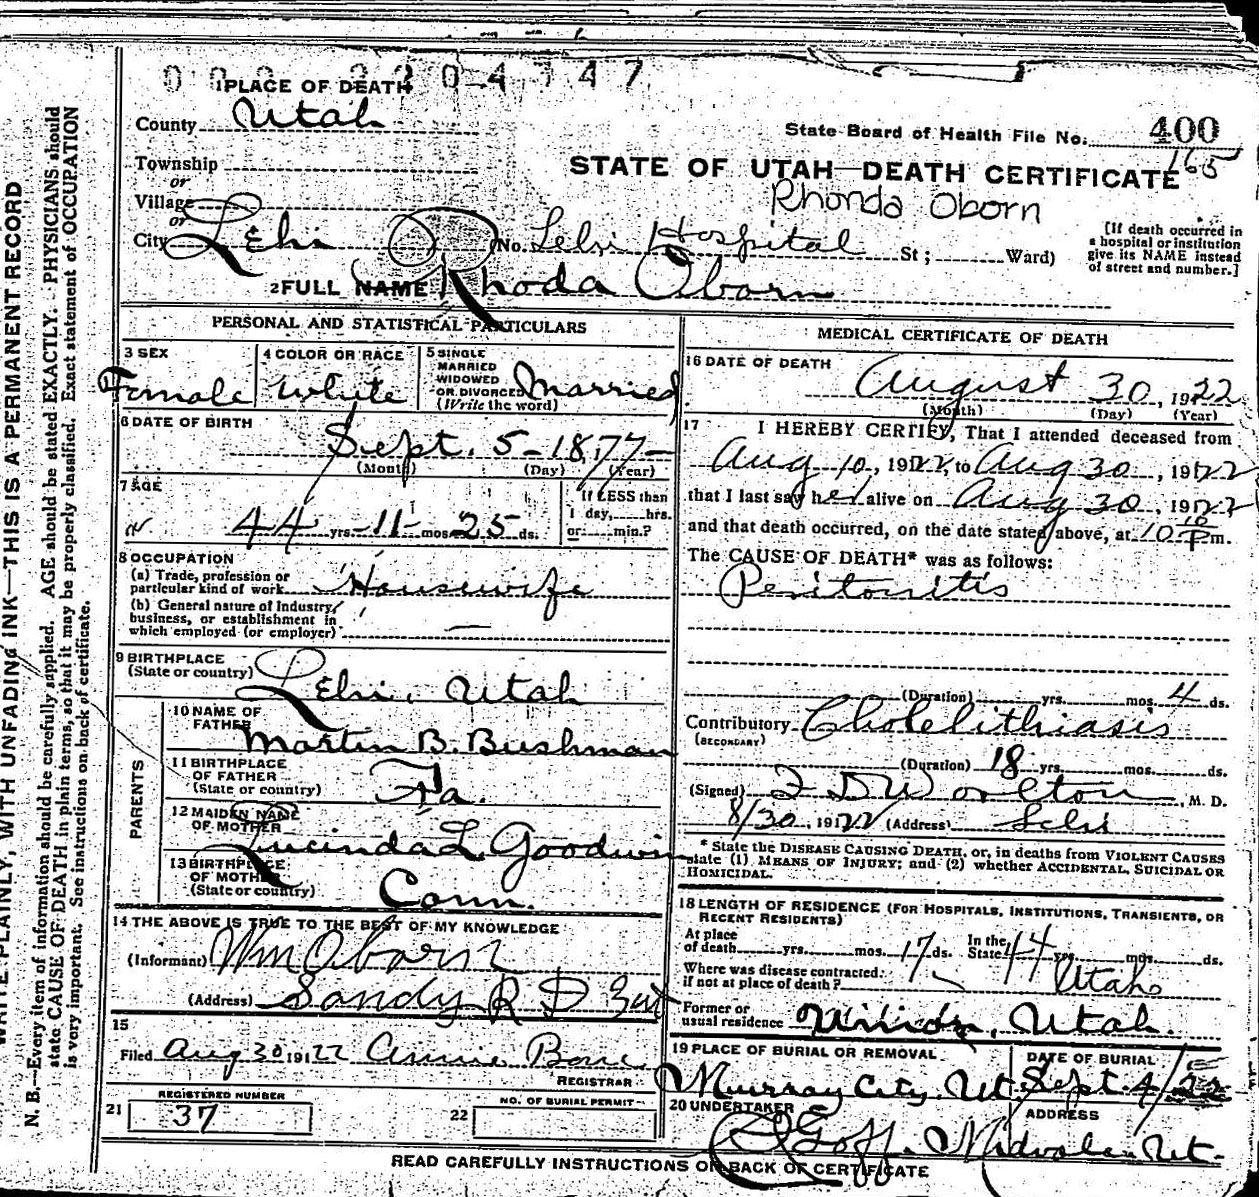 1PLACE OF DEATH
County Utah
State Board of Health File No. 400
165
Township
STATE OF UTAH—DEATH CERTIFICATE
or
Village
Rhonda Oborn
or
City Lehi (No. Lehi Hospital St; Ward)
[If death occurred in a hospital or institution give its NAME instead of street and number.]
2FULL NAME Rhoda Oborn
PERSONAL AND STATISTICAL PARTICULARS
3 SEX
Female
4 COLOR OR RACE
White
5 SINGLE MARRIED WIDOWED OR DIVORCED (Write the word)
Married
6 DATE OF BIRTH
Sept. 5 - 1877
(Month) (Day) (Year)
7 AGE
44 yrs. 11 mos. 25 ds.
If LESS than 1 day, hrs. or min.?
8 OCCUPATION
(a) Trade, profession or particular kind of work Housewife
(b) General nature of Industry, business, or establishment in which employed (or employer) —
9 BIRTHPLACE
(State or country) Lehi, Utah
PARENTS
10 NAME OF FATHER
Martin B. Bushman
11 BIRTHPLACE OF FATHER
(State or country)
12 MAIDEN NAME OF MOTHER
Lucinda L Goodwin
13 BIRTHPLACE OF MOTHER
(State or country) Conn.
14 THE ABOVE IS TRUE TO THE BEST OF MY KNOWLEDGE
(Informant) Wm Oborn
(Address) Sandy R D
15
Filed Aug 30, 1922 Annie
REGISTRAR
21 REGISTERED NUMBER
37
22 NO. OF BURIAL PERMIT
MEDICAL CERTIFICATE OF DEATH
16 DATE OF DEATH
August 30, 1922
(Month) (Day) (Year)
17 I HEREBY CERTIFY, That I attended deceased from
Aug 10, 1922, to Aug 30, 1922
that I last saw her alive on Aug 30, 1922
and that death occurred, on the date stated above, at 10 10 P m.
The CAUSE OF DEATH* was as follows:
Peritonitis
(Duration) yrs. mos. 4 ds.
Contributory Cholelithiasis
(SECONDARY)
(Duration) 18 yrs. mos. ds.
(Signed) Worlton, M. D.
8/30, 1922 (Address) Lehi
* State the DISEASE CAUSING DEATH, or, in deaths from VIOLENT CAUSES
state (1) MEANS OF INJURY; and (2) whether ACCIDENTAL, SUICIDAL OR
HOMICIDAL.
18 LENGTH OF RESIDENCE (FOR HOSPITALS, INSTITUTIONS, TRANSIENTS, OR
RECENT RESIDENTS)
At place of death yrs. mos. 17 ds. In the State 44 yrs. mos. ds.
Where was disease contracted. if not at place of death? Utah
Former or usual residence Union, Utah.
19 PLACE OF BURIAL OR REMOVAL
Murray City. Ut.
DATE OF BURIAL
Sept. 4/22
20 UNDERTAKER
Goff
ADDRESS
Midvale Ut.
READ CAREFULLY INSTRUCTIONS ON BACK OF CERTIFICATE
WRITE PLAINLY, WITH UNFADING INK—THIS IS A PERMANENT RECORD
N. B.—Every item of information should be carefully supplied. AGE should be stated EXACTLY. PHYSICIANS should
state CAUSE OF DEATH in plain terms, so that it may be properly classified. Exact statement of OCCUPATION
is very important. See instructions on back of certificate.